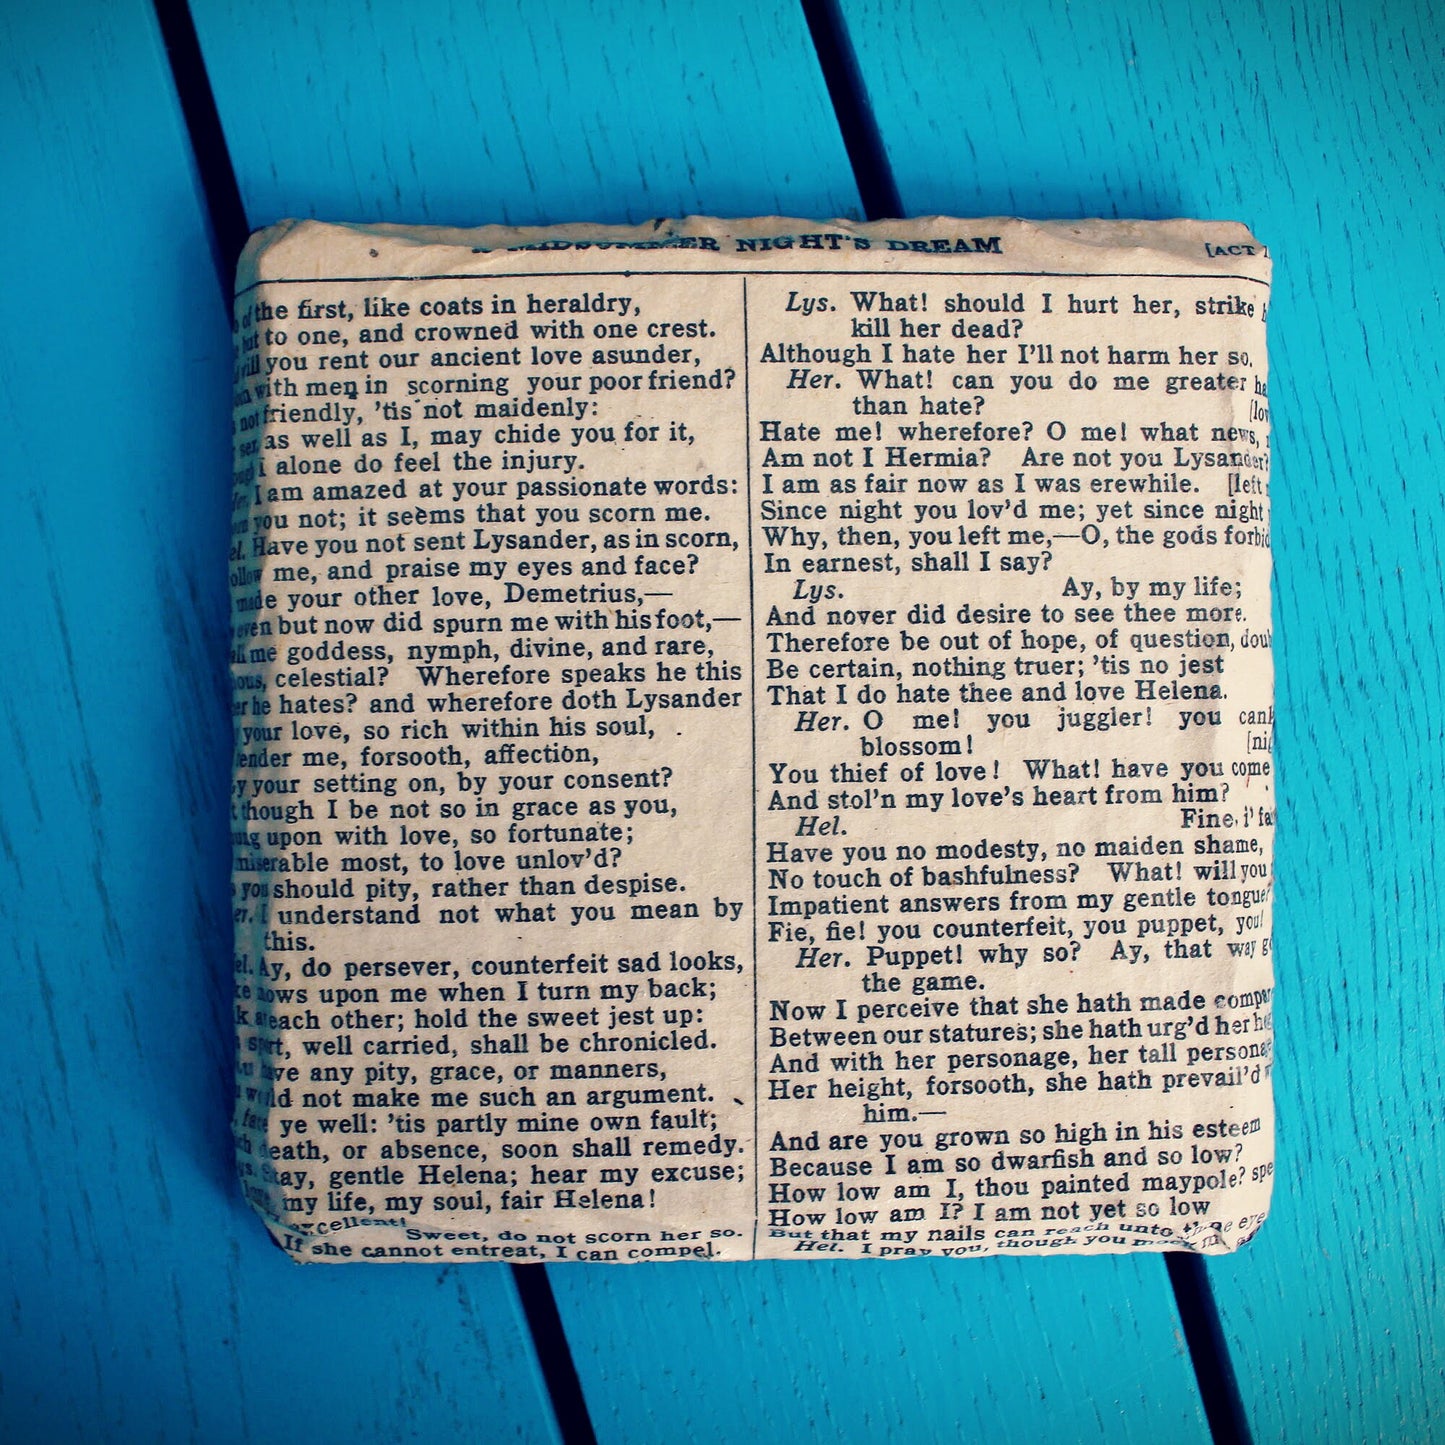 A MIDSUMMER NIGHT'S DREAM
[ACT
of the first, like coats in heraldry,
but to one, and crowned with one crest.
will you rent our ancient love asunder,
with men in scorning your poor friend?
not friendly, 'tis not maidenly:
sex as well as I, may chide you for it,
I alone do feel the injury.
Her. I am amazed at your passionate words:
you not; it seems that you scorn me.
Hel. Have you not sent Lysander, as in scorn,
follow me, and praise my eyes and face?
made your other love, Demetrius,—
even but now did spurn me with his foot,—
call me goddess, nymph, divine, and rare,
celestial? Wherefore speaks he this
he hates? and wherefore doth Lysander
your love, so rich within his soul,
tender me, forsooth, affection,
by your setting on, by your consent?
though I be not so in grace as you,
hung upon with love, so fortunate;
miserable most, to love unlov'd?
you should pity, rather than despise.
Her. I understand not what you mean by
this.
Hel. Ay, do persever, counterfeit sad looks,
mows upon me when I turn my back;
each other; hold the sweet jest up:
sport, well carried, shall be chronicled.
have any pity, grace, or manners,
would not make me such an argument.
fare ye well: 'tis partly mine own fault;
death, or absence, soon shall remedy.
Lys. Stay, gentle Helena; hear my excuse;
my life, my soul, fair Helena!
excellent!
Sweet, do not scorn her so.
If she cannot entreat, I can compel.
Lys. What! should I hurt her, strike
kill her dead?
Although I hate her I'll not harm her so.
Her. What! can you do me greater
than hate?
Hate me! wherefore? O me! what news,
Am not I Hermia? Are not you Lysander?
I am as fair now as I was erewhile. [left
Since night you lov'd me; yet since night
Why, then, you left me,—O, the gods forbid
In earnest, shall I say?
Lys. Ay, by my life;
And never did desire to see thee more.
Therefore be out of hope, of question,
Be certain, nothing truer; 'tis no jest
That I do hate thee and love Helena.
Her. O me! you juggler! you
blossom!
You thief of love! What! have you come
And stol'n my love's heart from him?
Hel. Fine, i'
Have you no modesty, no maiden shame,
No touch of bashfulness? What! will you
Impatient answers from my gentle tongue?
Fie, fie! you counterfeit, you puppet, you!
Her. Puppet! why so? Ay, that way
the game.
Now I perceive that she hath made
Between our statures; she hath urg'd her
And with her personage, her tall
Her height, forsooth, she hath prevail'd
him.—
And are you grown so high in his esteem
Because I am so dwarfish and so low?
How low am I, thou painted maypole?
How low am I? I am not yet so low
But that my nails can reach unto thine
Hel. I pray you, though you mock